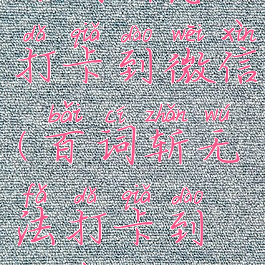 dǎ qiǎ dào wēi xìn
打卡到微信
bǎi cí zhǎn wú
(百词斩无
fǎ dǎ qiǎ dào
法打卡到